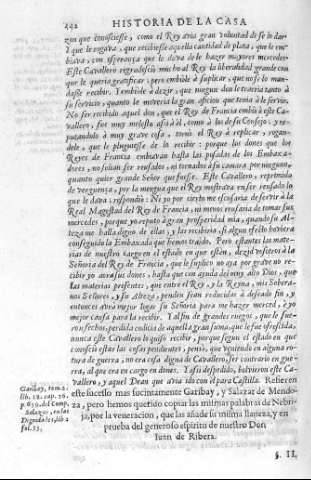 242 HISTORIA DE LA CASA
zon que conosciesse, como el Rey avia gran voluntad de se lo dar:
i que le rogava, que recibiesse aquella cantidad de plata, que le em-
biava, con esperança que le avia de hazer mayores mercedes.
Este Cavallero regradesciò mucho al Rey la liberalidad grande con
que le queria gratificar, pero embiòle à suplicar, que no se lo man-
dasse recibir. Tambien à dezir, que ningun don le traeria tanto à
su servicio, quanto le moveria la gran aficion que tenia à le servir.
No fue recibido aquel don, que el Rey de Francia embiò à este Ca-
vallero, fue muy molesto assi à èl, como à los de su Consejo; re-
putandolo à muy grave cosa, tornò el Rey à replicar, rogan-
dole, que le pluguiesse de lo recibir: porque los dones que los
Reyes de Francia embiavan hasta las posadas de los Embaxa-
dores, no solian ser reusados, ni tornados à su camara por ninguno,
quanto quier grande Señor que fuesse. Este Cavallero, repremido
de verguença, por la mengua que el Rey mostrava en ser reusado lo
que le dava, respondiò: Ni yo por cierto me escusaria de servir à la
Real Magestad del Rey de Francia, ni menos reusaria de tomar sus
mercedes, porque yo reputo à gran prosperidad mia, quando su Al-
teza me halla digno de ellas, y las recibiera, si algun efecto hoviera
conseguido la Embaxada que hemos traido. Pero estantes las mate-
rias de nuestro cargo en el estado en que estàn, dezid vosotros à la
Señoria del Rey de Francia, que le suplico no aya por grave no re-
cibir yo aora sus dones, hasta que con ayuda del muy alto Dios, que
las materias presentes, que entre el Rey, y la Reyna, mis Sobera-
nos Señores, y su Alteza, penden sean reducidas à deseado fin, y
entonces avrà mejor lugar su Señoria para me hazer merced, è yo
mejor causa para la recibir. Tal fin de grandes ruegos, que le fue-
ron fechos, perdida codicia de aquella gran suma, que le fue ofrescida,
nunca este Cavallero lo quiso recibir, porque segun el estado en que
conosciò estar las cosas pendientes, pensò, que viniendo en alguna rotu-
ra de guerra, no era cosa digna de Cavallero, ser contrario en guer-
ra, al que era en cargo en dones. Tassi despedido, bolvieron este Ca-
vallero, y aquel Dean que avia ido con èl para Castilla. Refieren
este sucesso mas sucintamente Garibay, y Salazar de Mendo-
za, pero hemos querido copiar las mismas palabras de Nebri-
ja, por la veneracion, que las añade su misma llaneza, y en
prueba del generoso espiritu de nuestro Don
Iuan de Ribera.
Garibay, tom. 2.
lib. 18. cap. 26.
p. 650. del Comp.
Salazar, en las
Dignidades, lib. 2
fol. 55.
§. II.